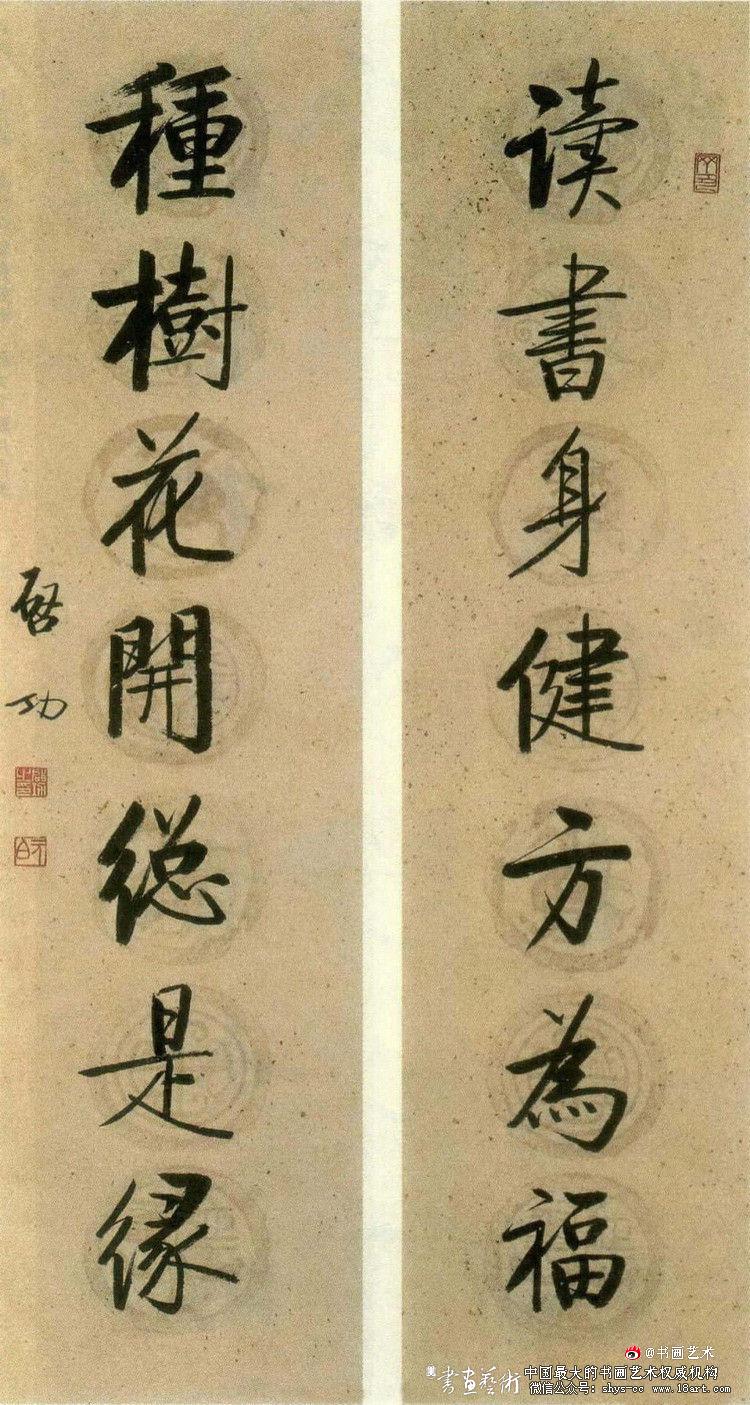 读書身健方為福
種樹花開總是緣
啟功
@书画艺术
書画藝術
中国最大的书画艺术权威机构
微信公众号：shys-cc www.18art.com